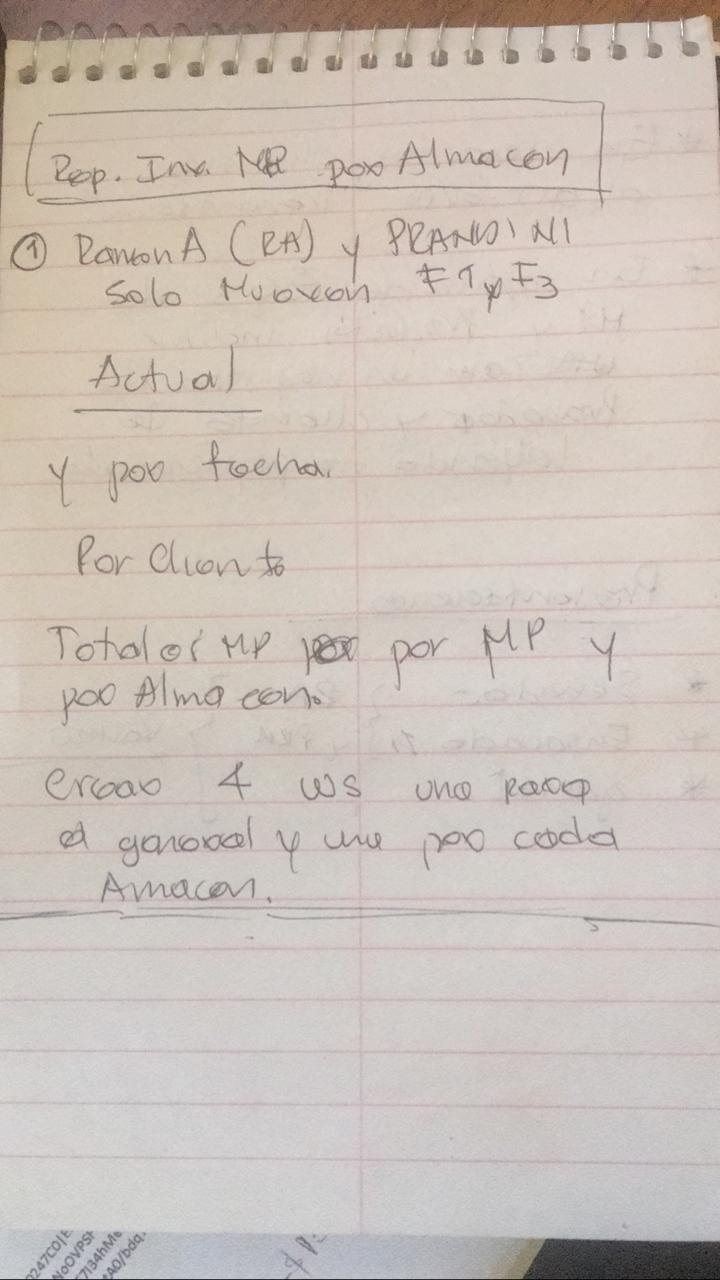 Rep. Inv. MP por Almacen
① Ramon A (RA) y PRANDINI
Solo Mueven F1 y F3
Actual
y por fecha.
Por Cliente
Total de MP por MP y
por Almacen.
crear 4 ws uno para
el general y uno por cada
Amacen.
0247C0
NoOVPS
7134hM
tA0/bdq